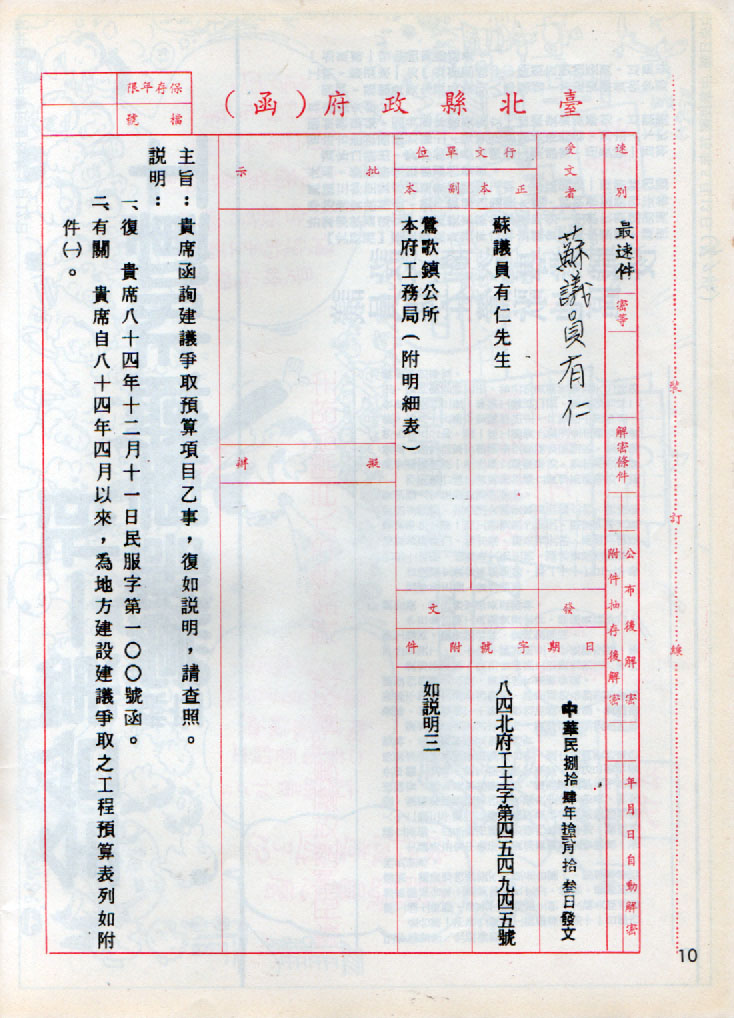 臺北縣政府(函)
保存年限
檔號
速別
最速件
密等
解密條件
公布後解密
附件抽存後解密
年月日自動解密
受文者
蘇議員有仁
行文單位
正本
蘇議員有仁先生
副本
鶯歌鎮公所
本府工務局(附明細表)
發文
日期
中華民捌拾肆年拾貳月拾叁日發文
字號
八四北府工土字第四五四九四五號
附件
如說明三
批示
擬辦
主旨:貴席函詢建議爭取預算項目乙事,復如說明,請查照。
說明:
一、復 貴席八十四年十二月十一日民服字第一〇〇號函。
二、有關 貴席自八十四年四月以來,為地方建設建議爭取之工程預算表列如附
件㈠。
裝
訂
線
10